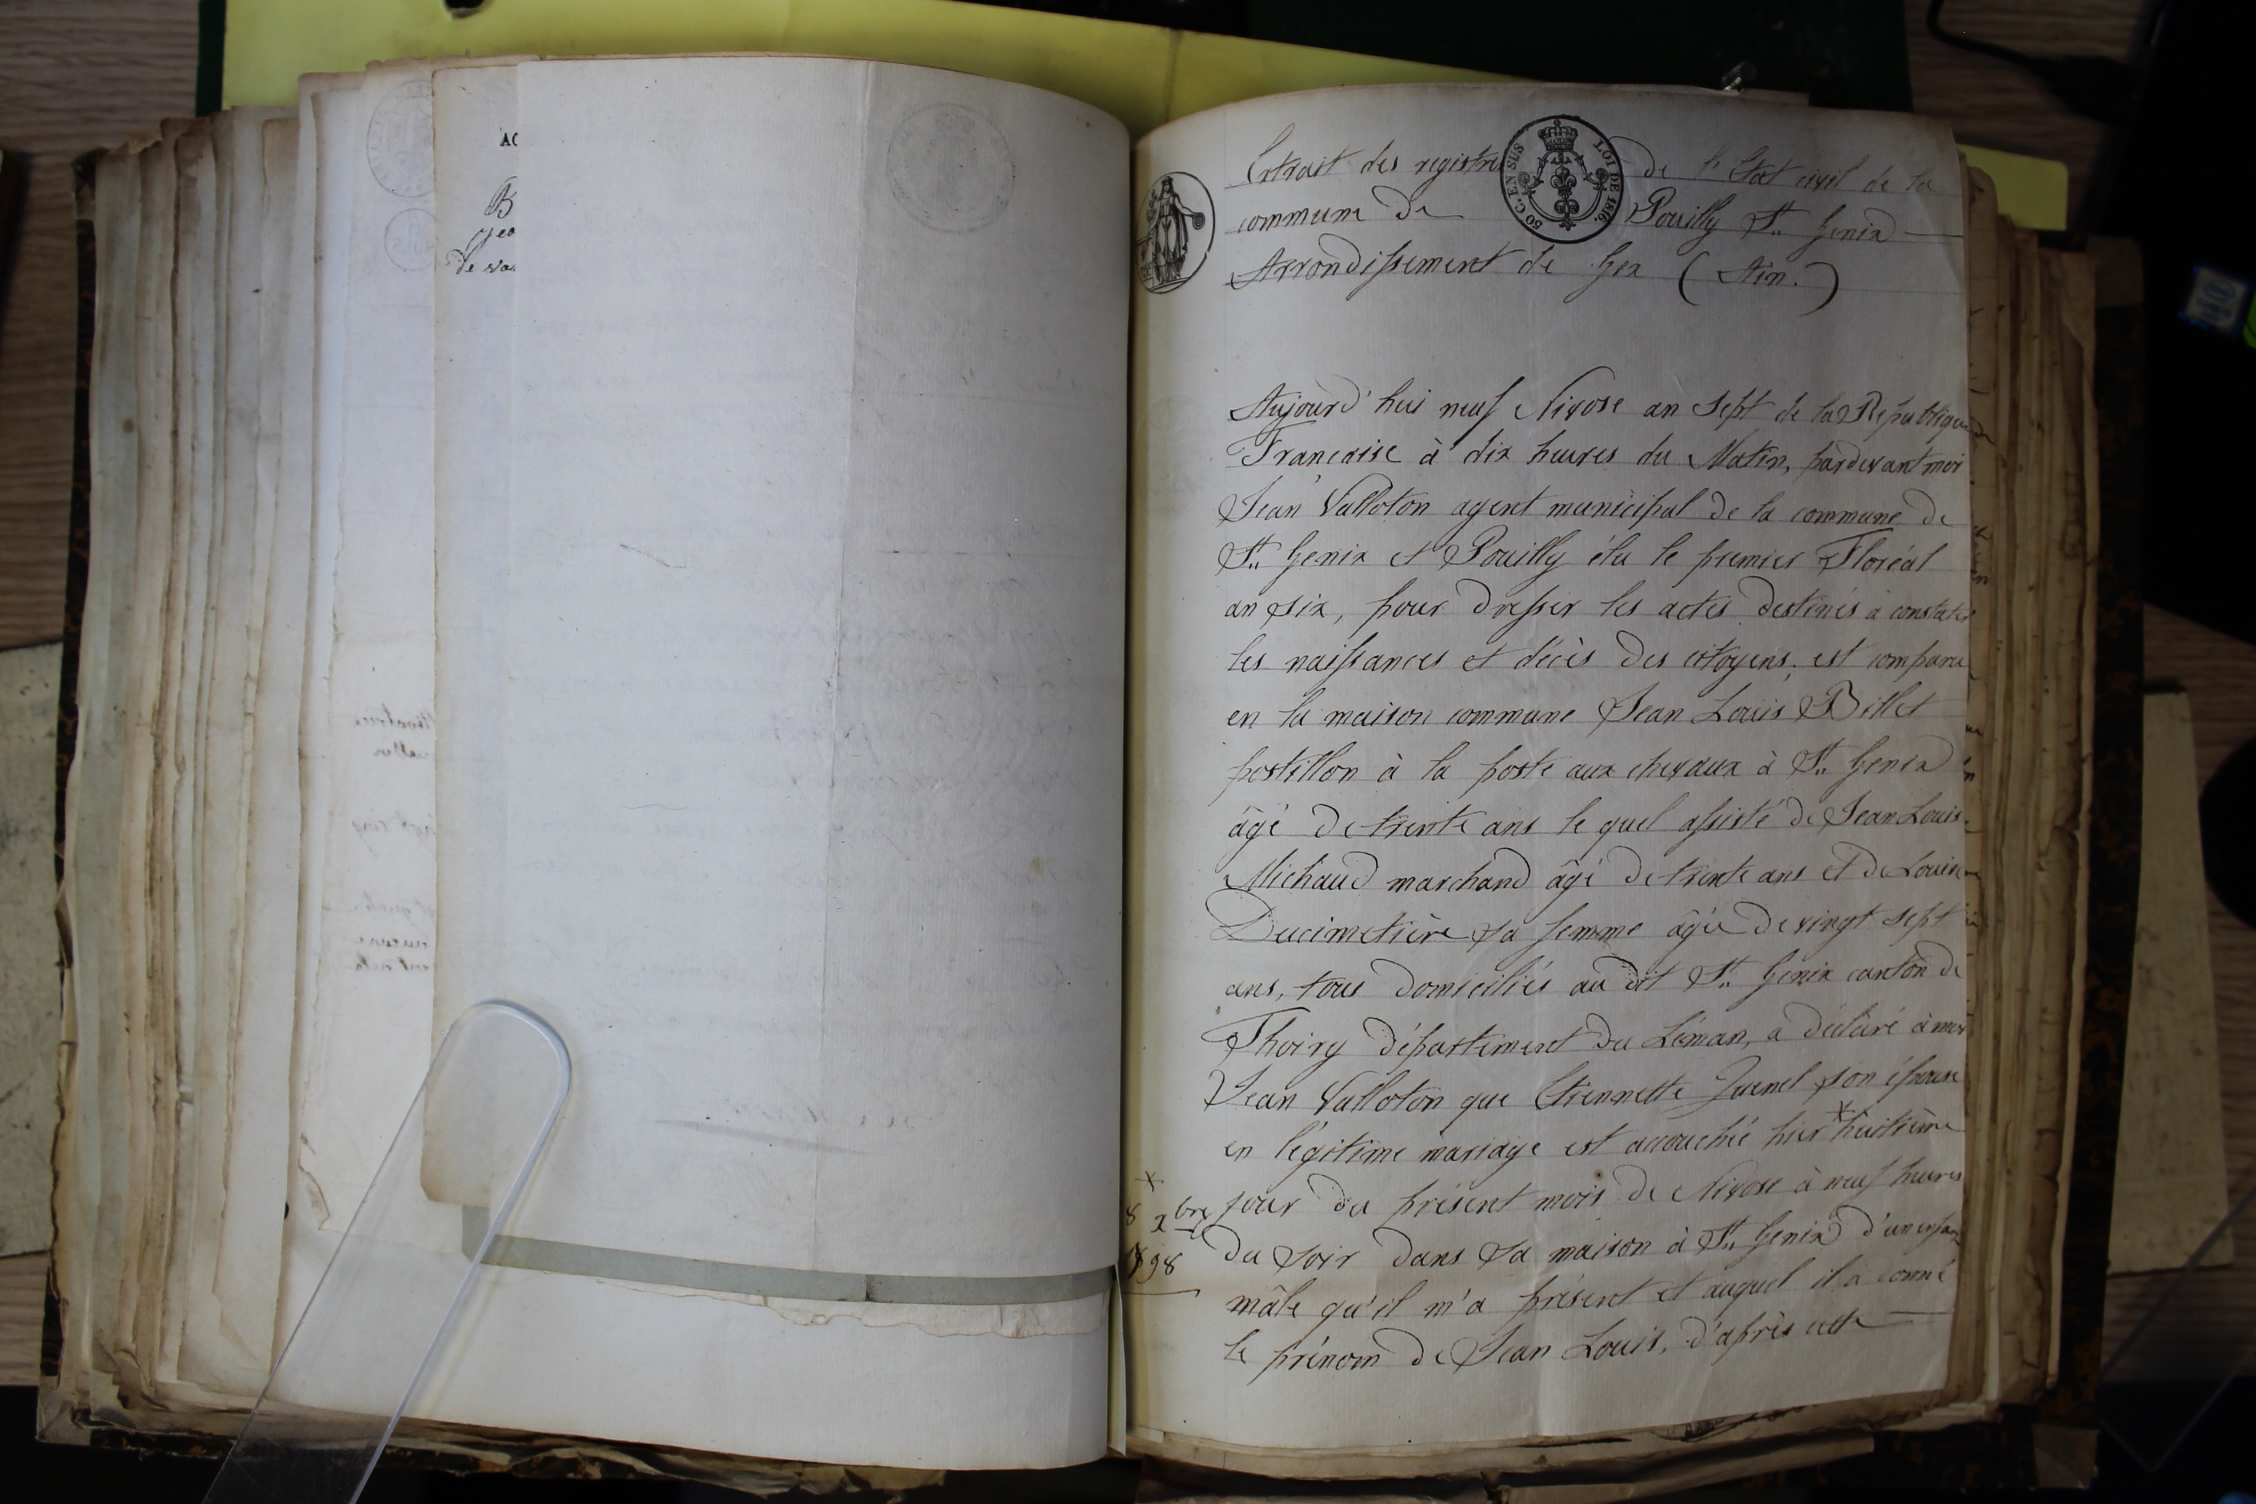 AC
B
geo
de va
Extrait des registres de l'Etat civil de la
50 C. EN SUS LOI DE 1816.
commune de Pouilly St. Genix
Arrondissement de Gex (Ain.)
Aujourd'hui neuf Nivose an Sept de la République
Francaise à dix heures du Matin, pardevant moi
Jean Valloton agent municipal de la commune de
St. Genix et Pouilly élu le premier Floréal
an six, pour dresser les actes destinés à constater
les naissances et décès des citoyens, est comparu
en la maison commune Jean Louis Billet
postillon à la poste aux chevaux à St. Genix
âgé de trente ans le quel assisté de Jean Louis
Michaud marchand âgé de trente ans et de Louise
Ducimetière sa femme âgée de vingt sept
ans, tous domiciliés au dit St. Genix canton de
Thoiry département du Léman, a déclaré à moi
Jean Valloton que Etiennette son épouse
en légitime mariage est accouchée hier * huitième
jour du présent mois de Nivose à neuf heures
du soir dans sa maison à St. Genix d'un enfant
mâle qu'il m'a présent et auquel il a donné
le prénom de Jean Louis, d'après cette
*
8 xbre
98